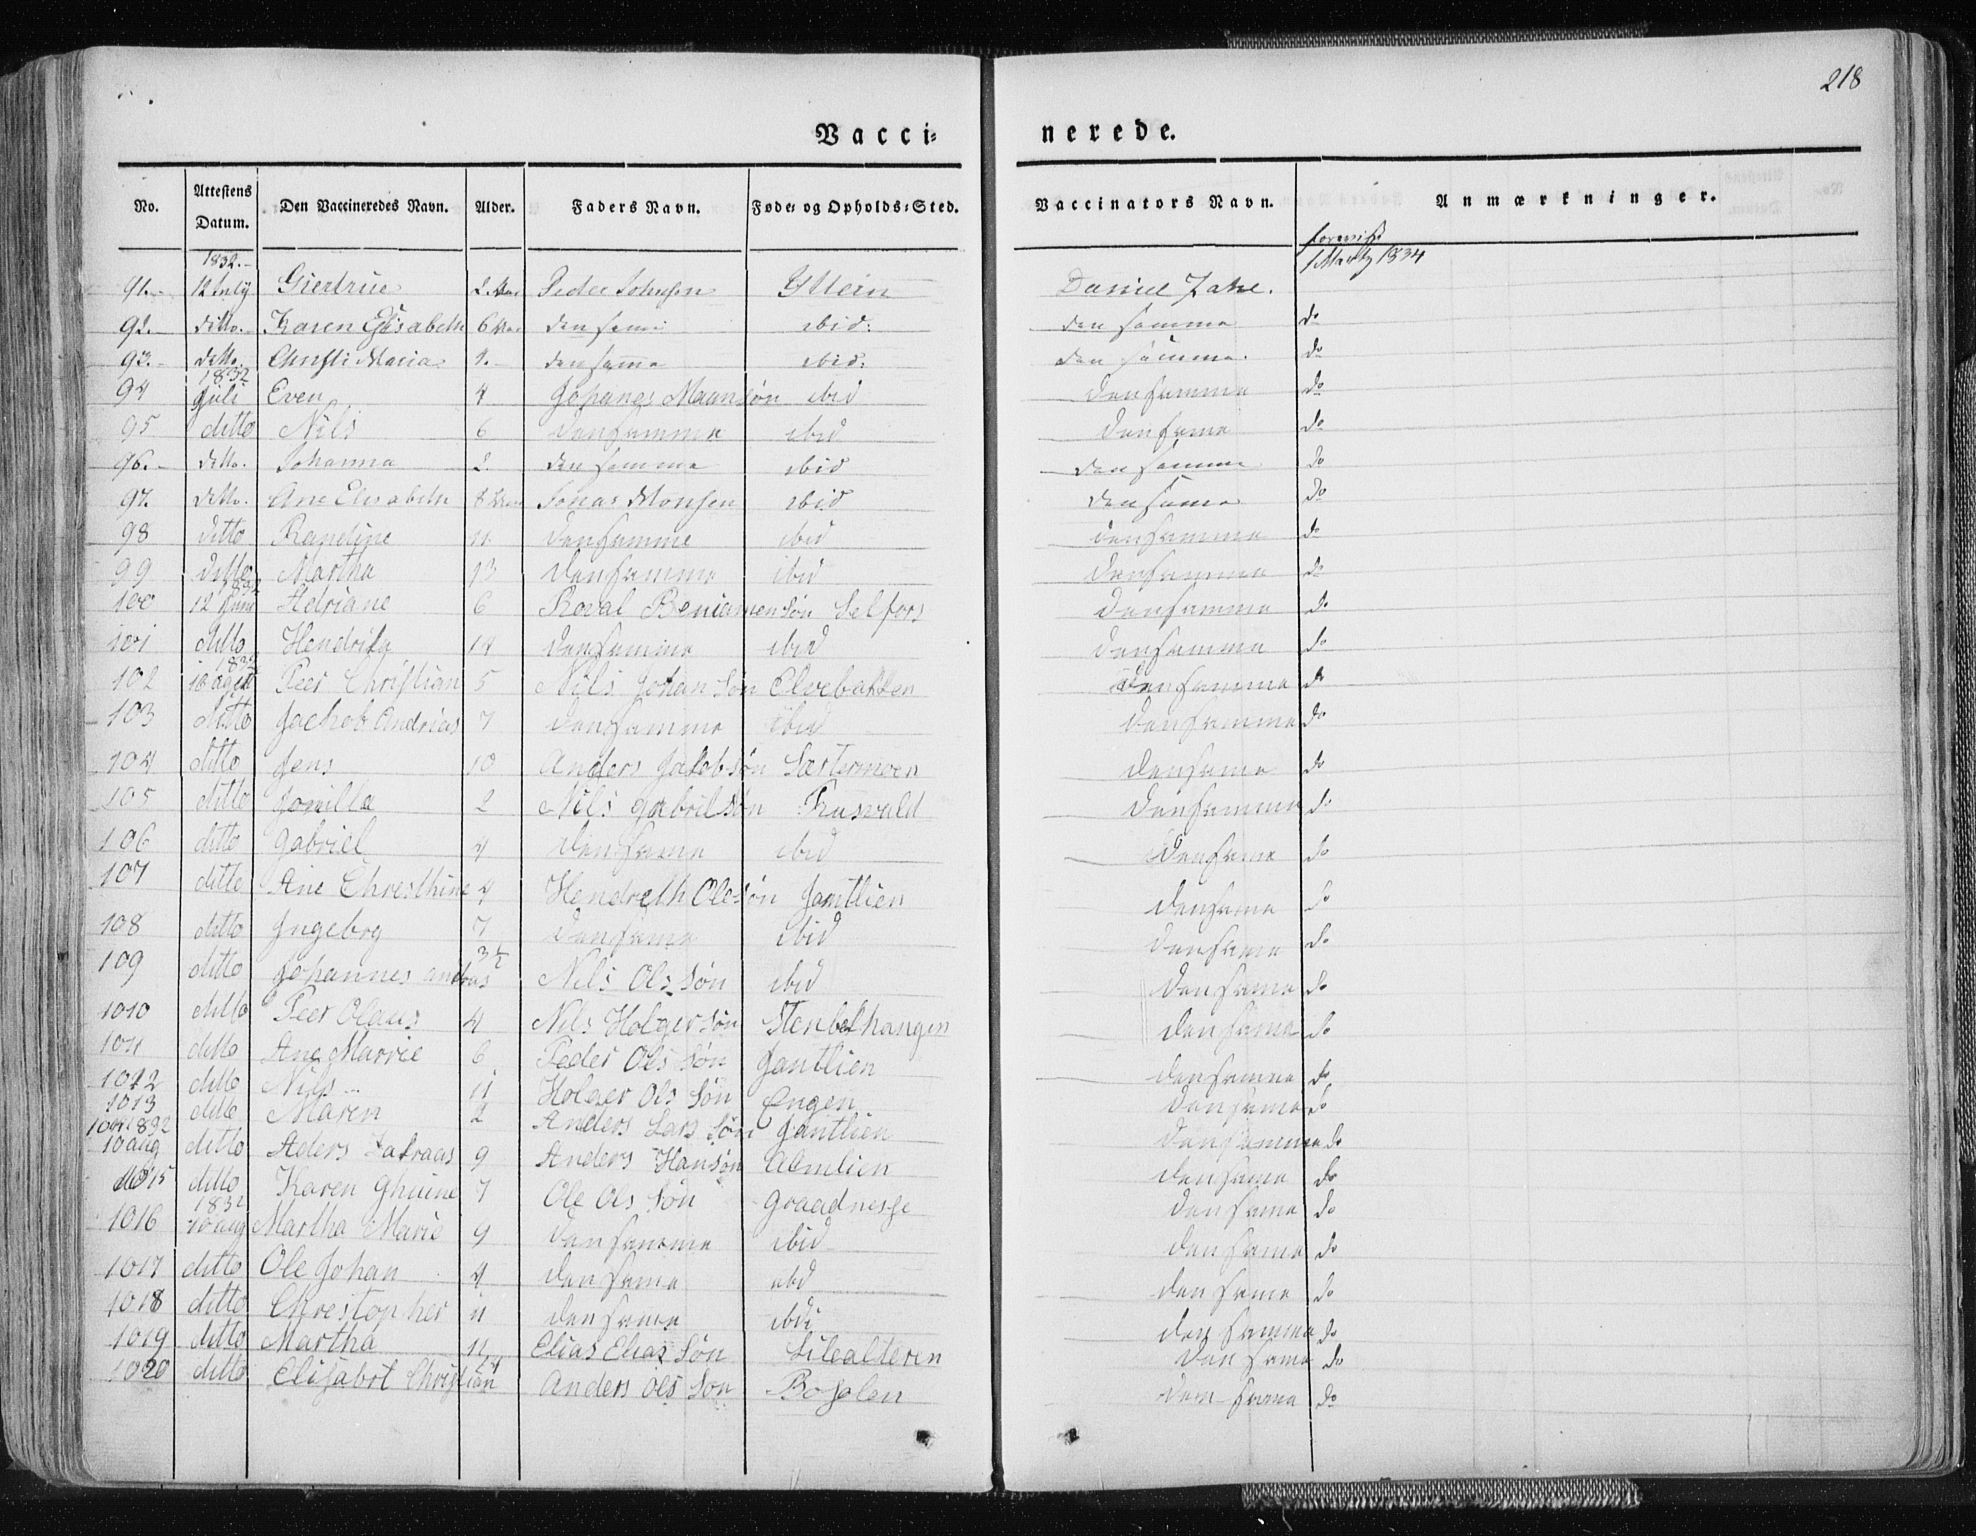 218
Vacci- nerede.
No. Attestens Datum. Den Vaccineredes Navn. Alder. Faders Navn. Føde- og Opholds-Sted. Vaccinators Navn. Anmærkninger.
1832.-
1834
91.- 12 July Giertrue 2. Peder Johnsen Yttein Daniel
92. ditto. Karen Elisabeth 6 den same ibid: den samme do
93. ditto. Christi Maria den samme ibid: den samme. do
1832
94 Juli Even 4 Johanes Maansøn ibid den samme do
95 ditto Nils 6 den samme ibid den same do
96.- ditto. Johanna 2. den samme ibid den samme do
97. ditto. Ane Elisabeth 8 Jonas Monsen ibid den same do
98 ditto Randine 11 den samme ibid den samme do
99 ditto Martha 13 den samme ibid den samme do
1832
100 12 Juni Adriane 6 Roval Beniamensøn Selfors den samme do
101 ditto Hendrika 14 den samme ibid den samme do
102 10 Peer Christian 5 Nils Johansøn Elvebakken den samme do
103 ditto Jachob Andrias 7 den samme ibid den samme do
104 ditto Jens 10 Anders Jakobsøn Sætermoen den same do
105 ditto Jonilla 2 Nils gabrilsøn Kusvald den samme do
106 ditto Gabriel 4 den same ibid den same do
107 ditto Ane Chresthine 4 Hendreth Olesøn Jamtlien den same do
108 ditto Jngebrg 7 den same ibid den same do
109 ditto Johannes andras 3½ Nils Olssøn ibid den same do
1010 ditto Peer Olaus 4 Nils Holgersøn Stenbekhangen den same do
1011 ditto Ane Marrie 6 Peder Ols Søn Jantlien den same do
1012 ditto Nils 11 Holger Ols Søn Engen den same do
1013 ditto Maren 2 Anders Lars Søn Jantlien den samme do
1014 1832
10 aug ditto Aders Zakraas 9 Anders Hansøn Almlien den same do
1015 ditto Karen 7 Ole Ols Søn Graadnesge den same do
1832
1016 10 aug Martha Marie 9 den samme ibid den same do
1017 ditto Ole Johan 4 den same ibd den same do
1018 ditto Chrestopher 11 den same ibid den samme do
1019 ditto Martha 11 Elias Elias Søn Silealteren den same do
1020 ditto Elisabet Christian Anders Ols Søn Bosolen den same do